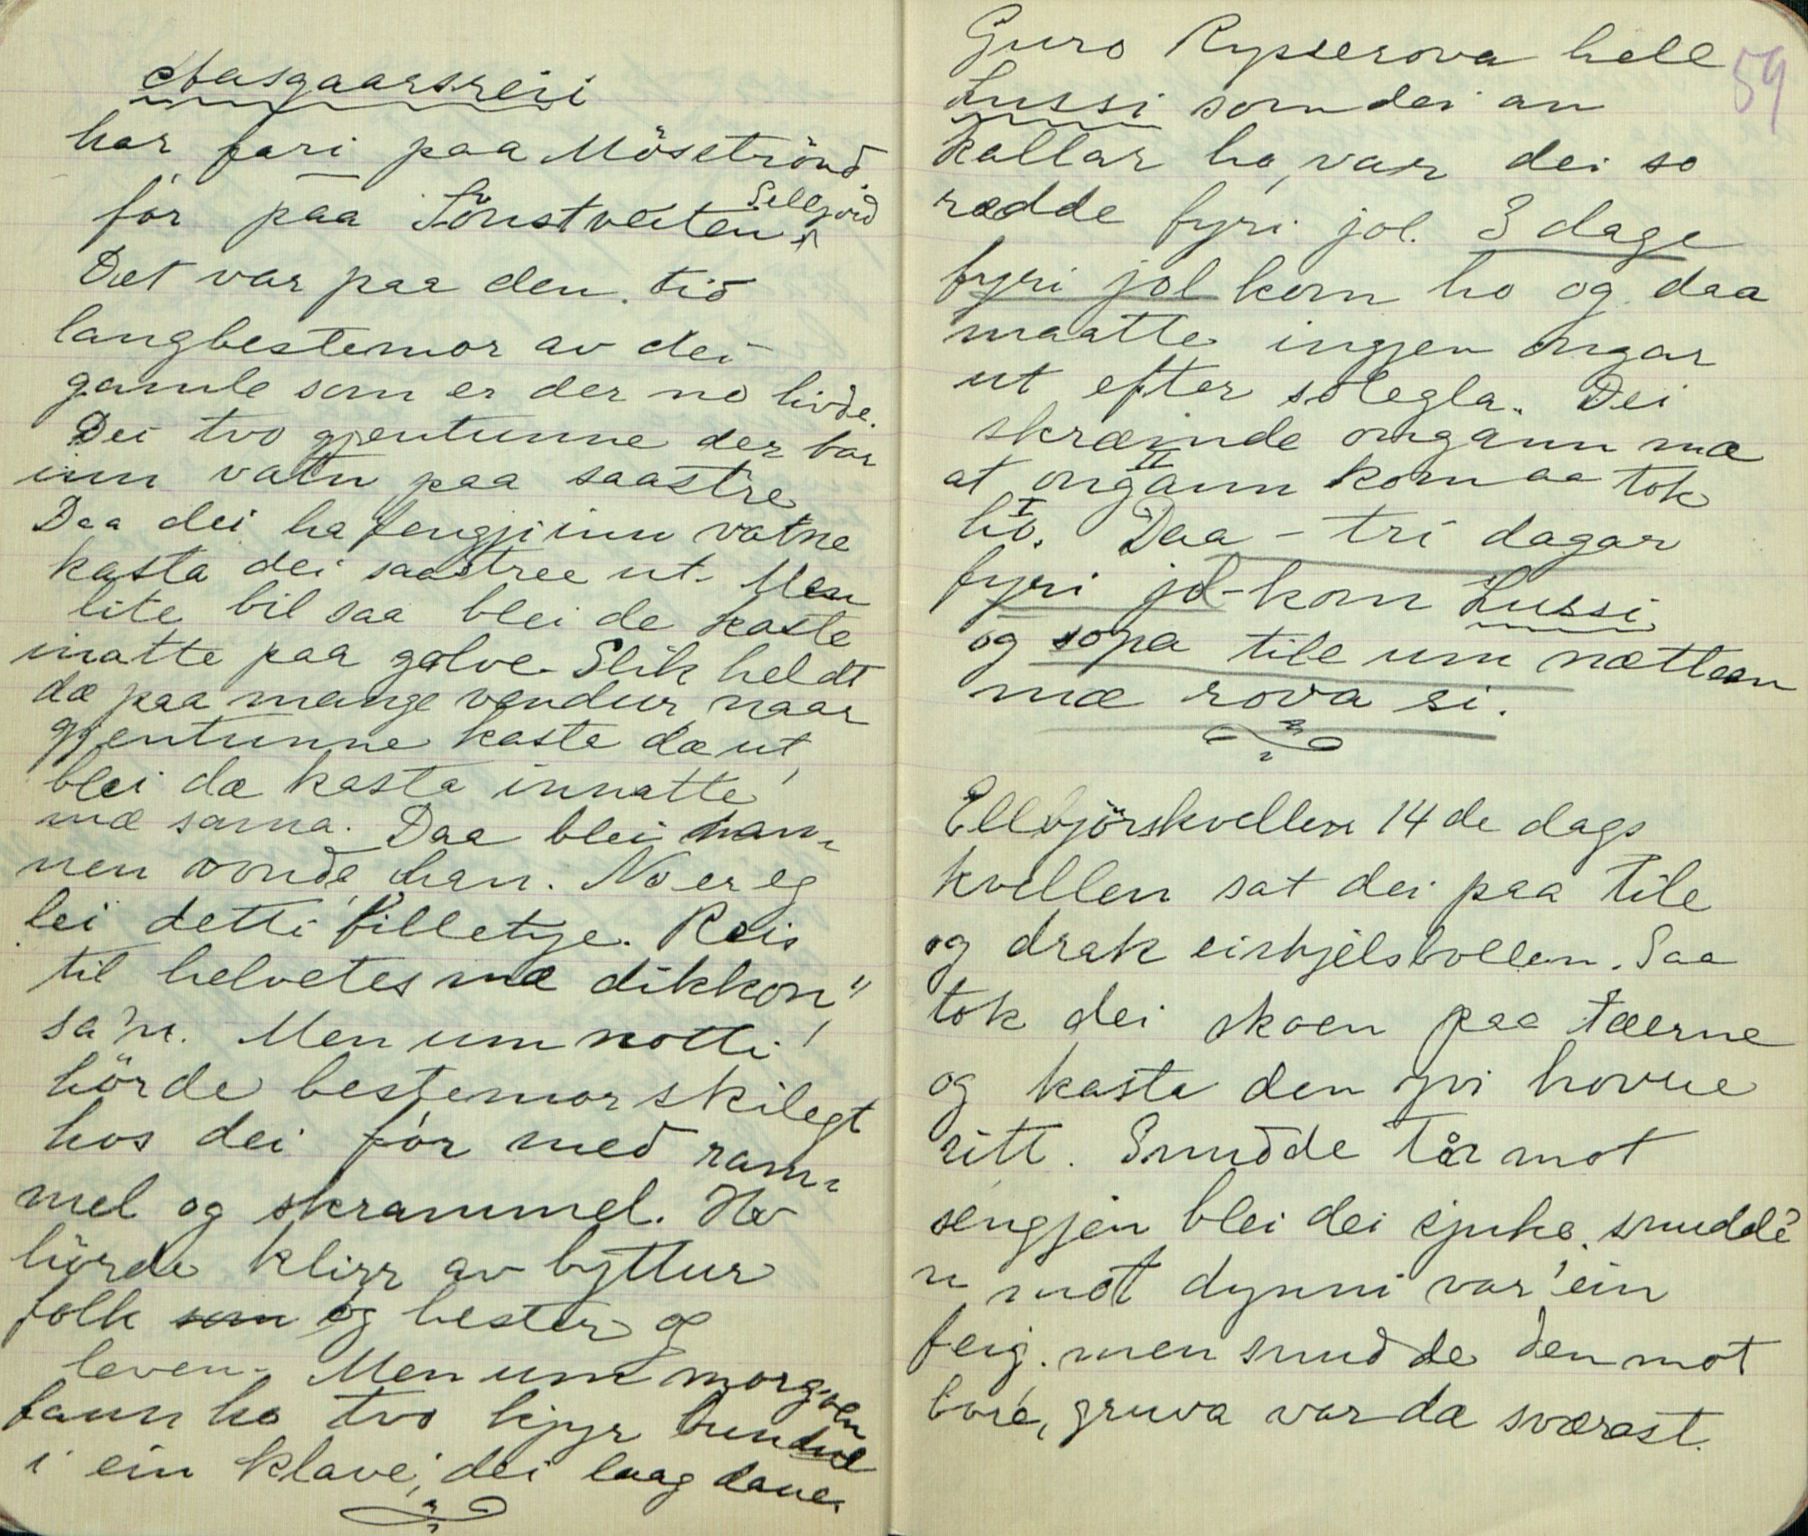 Aasgaarsreii
har fari paa Mösströnd.
fór paa Tönstveiten Sellgjord
Det var paa den tid
langbestemor av dei
gamle som er der no livde.
Dei tvo gjentunne der bar
inn vatn paa saastre
Daa dei ha fengji inn vatne
kasta dei saastree ut. Men
lite bil saa blei de kaste
inatte paa golve. Slik heldt
dæ paa mange vendur, naar
gjentunne kasta dæ ut,
blei dæ kasta innatte
mæ sama. Daa blei man-
nen vonde, han. No er eg
lei detti filletye. Reis
til helvetes mæ dikkon"
sa'n. Men um notti
hörde bestemor skilegt
hos dei fór med ram-
mel og skrammel. Ho
hörde klirr av byttur
folk som og hester og
leven. Men um morgoen
fann ho tvo kjyr bundne
i ein klave, dei laag daue.
59
Guro Rysserova hell
Lussi som dei au
kallar ho, var dei so
rædde fyri jol. 3 dage
fyri jol kom ho og daa
maatte ingjen ongar
ut efter solegla. Dei
skræmde ongann mæ
at ongann kom aa tok
ho. Daa - tri dagar
fyri jol - kom Lussi
og sopa tile um nættean
mæ rova si.
Ellbjörskvellen 14 de dags
kvellen sat dei paa tile
og drak eirhjelsbollen. Saa
tok dei skoen paa tæerne
og kasta den yvi hovue
sitt. Snudde tår mot
sengjen blei dei sjuke, snudde
n mot dynni var ein
feig. men snudde den mot
bore, gruva var dæ sværast.